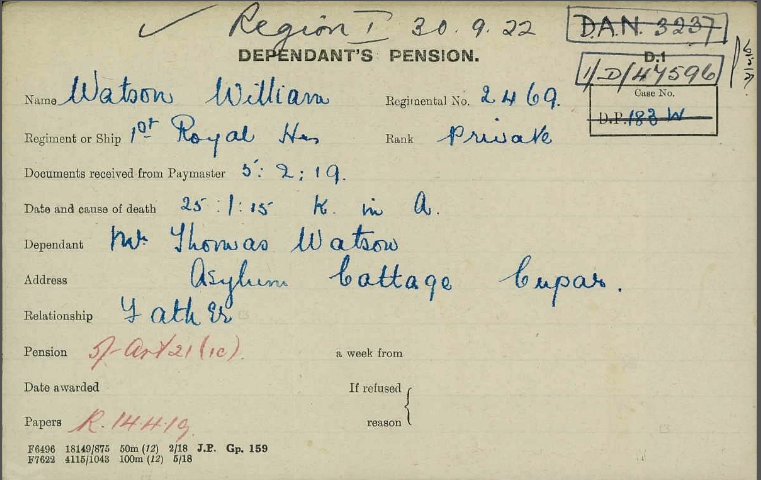 ✓ Region I 30.9.22 D.A.N. 3237
DEPENDANT'S PENSION. D.1
1/D/47596
Name Watson William Regimental No. 2469. Case No.
Regiment or Ship 1st Royal Hrs Rank Private D.P. 183 W
Documents received from Paymaster 5:2:19.
Date and cause of death 25:1:15 K. in A.
Dependant Mr Thomas Watson
Address Asylum Cottage Cupar.
Relationship Father
Pension 5/- Art 21 (1c). a week from
Date awarded If refused
Papers R.14.4.19. reason
F6496 18149/875 50m (12) 2/18 J.P. Gp. 159
F7622 4115/1043 100m (12) 5/18